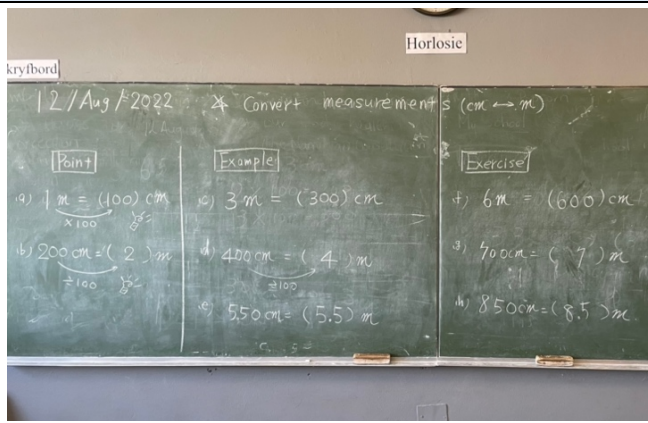 Horlosie
kryfbord
12/Aug/2022 * Convert measurements (cm ↔ m)
Point
a) 1 m = (100) cm
×100
b) 200 cm = ( 2 ) m
÷100
Example
c) 3 m = (300) cm
d) 400 cm = ( 4 ) m
÷100
e) 550 cm = (5.5) m
Exercise
f) 6m = (600) cm
g) 700cm = ( 7 ) m
h) 850cm = (8.5) m